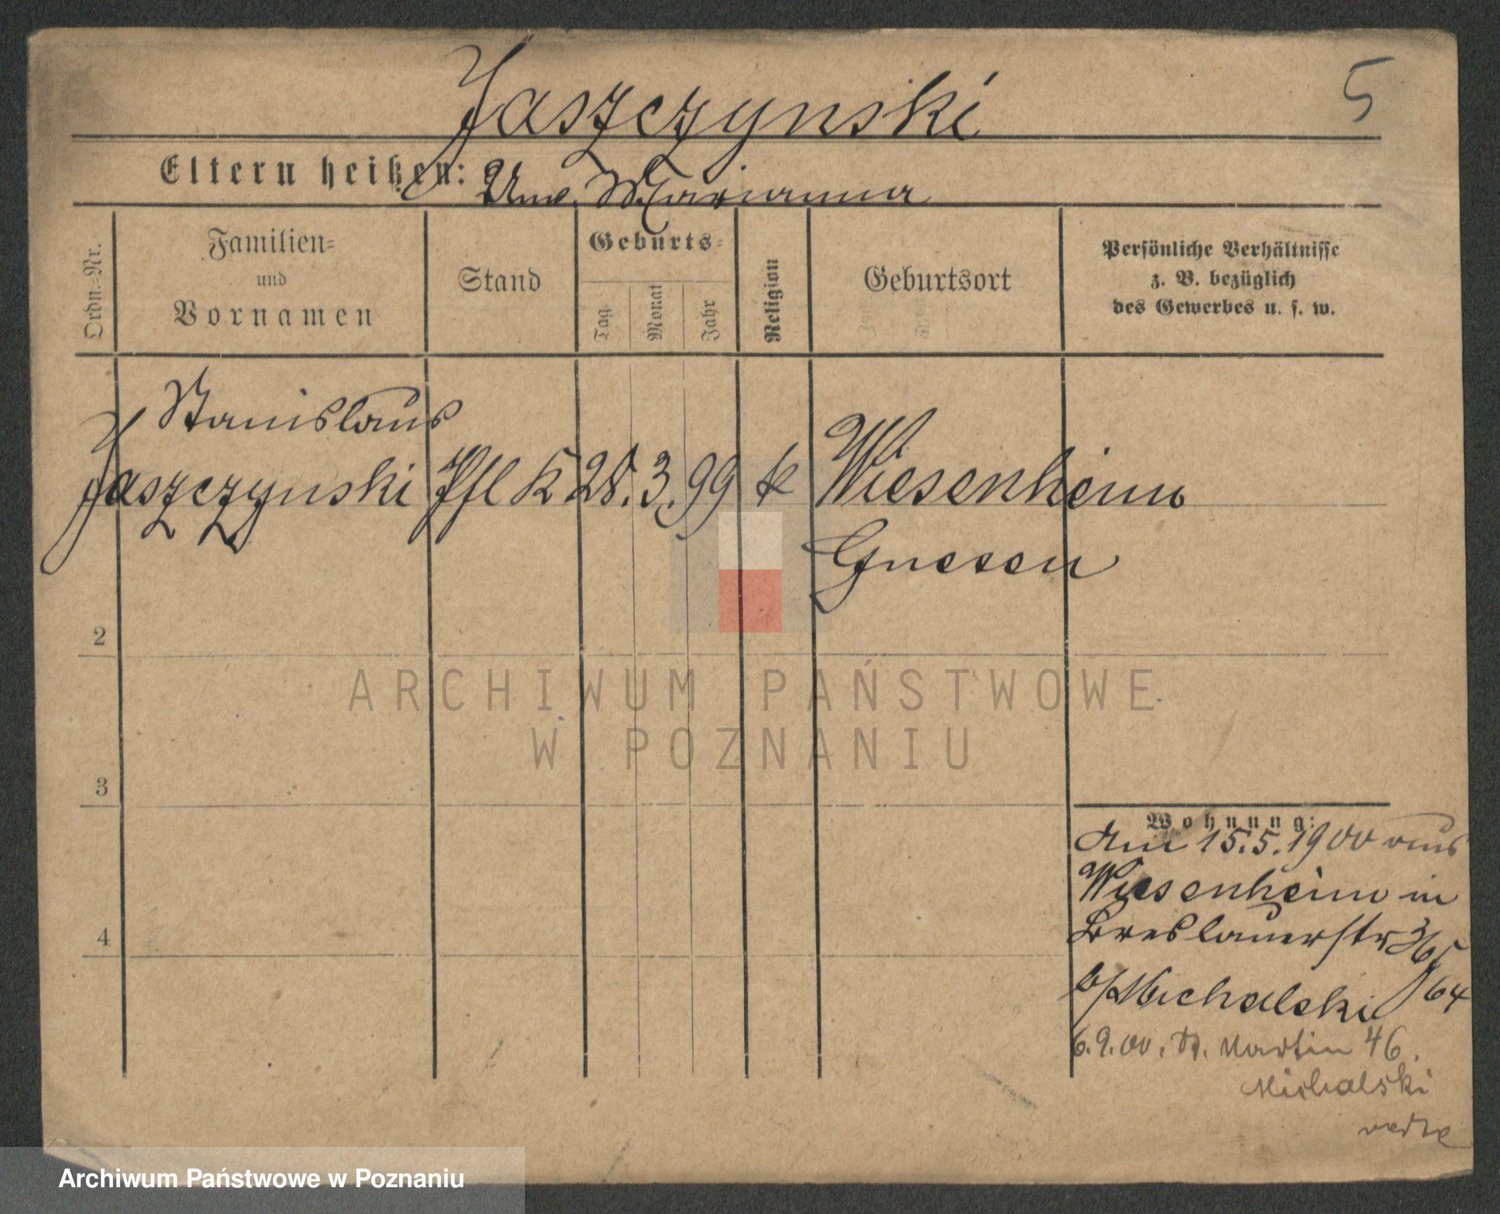 Jaszczynski
5
Eltern heißen: Unv. Marianna
Ordn.-Nr.
Familien-
und
Vornamen
Stand
Geburts-
Tag
Monat
Jahr
Religion
Geburtsort
Persönliche Verhältnisse
z. B. bezüglich
des Gewerbes u. s. w.
Stanislaus
Jaszczynski Pfl K 28. 3. 99 k Wiesenheim
Gnesen
2
3
4
ARCHIWUM PAŃSTWOWE
W POZNANIU
Wohnung:
Am 15.5.1900 aus
Wiesenheim in
Breslauerstr 36
b/Michalski 64
6.9.00. St. Martin 46.
Michalski
Archiwum Państwowe w Poznaniu